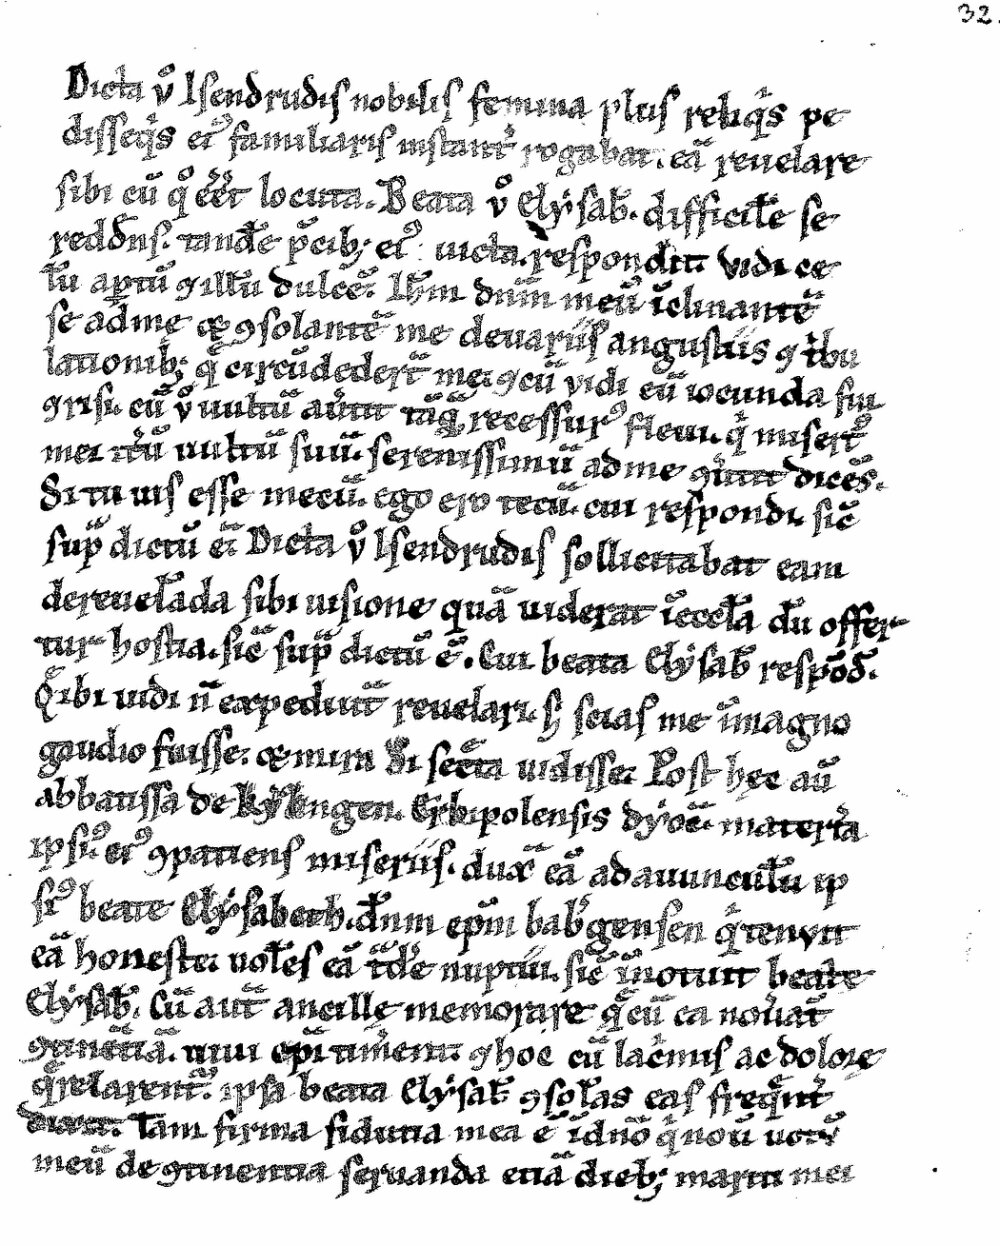 32.
Dicta v͛o Isendrudis nobilis femina plus reliqⁱs pe
disseqⁱs ei᷒ familiaris instant͛ rogabat. eā reuelare
sibi cū qͦ eēt locuta. Beata v͛o Elẏsab̄. difficil̄e se
reddēs. tand̄e p̄cib; ei᷒ uicta. respondit. vidi ce
lū aptū ⁊ illū dulcē. Ih̄m dn̄m meū īclinantē
se ad me ⁊ ꝯsolantē me de uariis angustiis ⁊ tbu
lationib; q̄ circūdedert̄ me. ⁊ cū vidi eū iocunda fui
⁊ risi. cū v͛o uultū aūtit tāqᷓ recessur᷒ fleui. qⁱ misert᷒
mei itū uultū suū. serenissimū ad me ꝯūtit dicēs.
Si tu uis esse mecū. ego ero tecū. cui respondi. sic̄
sup̄ dictū ē. Dicta v͛o Isendrudis sollicitabat eam
de reuel̄ada sibi uisione quā uiderat ī eccl̄a dū offer
tur hostia. sic̄ sup̄ dictū ē. Cui beata Elẏsab̄ respōd̄.
Q̄ ibi uidi n̄ expediūt reuelari. s; scias me ī magno
gaudio fuisse. ⁊ mira Di secᵉta uidisse. Post hęc aū
abbatissa de Kẏzingen. Erbipolensis dẏoc̄. mater͛ta
ipsi᷒. ei᷒ ꝯpatiens miseriis. dux̄ eā ad auunculū ip
si᷒ beate Elẏsabeth. d̄nm ep̄m bab̄gensen qⁱ tenuit
eā honeste. uol̄es eā t̄d̄e nuptui. sic̄ īnotuit beate
Elẏsab̄. Cū aut̄ ancillę memorare q̄ cū ea nou͛at̄
ꝯtinētiā. uiui ep̄i tim̄ent. ⁊ hoc cū lac͛mis ac dolore
q̄relarent᷒. ipsa beata Elẏsab̄ ꝯsol̄as eas freq̄nt͛
dixit. Tam firma fiducia mea ē ī dn̄o qⁱ nou͛ uotū
meū de ꝯtinentia seruanda etiā dieb; mariti mei